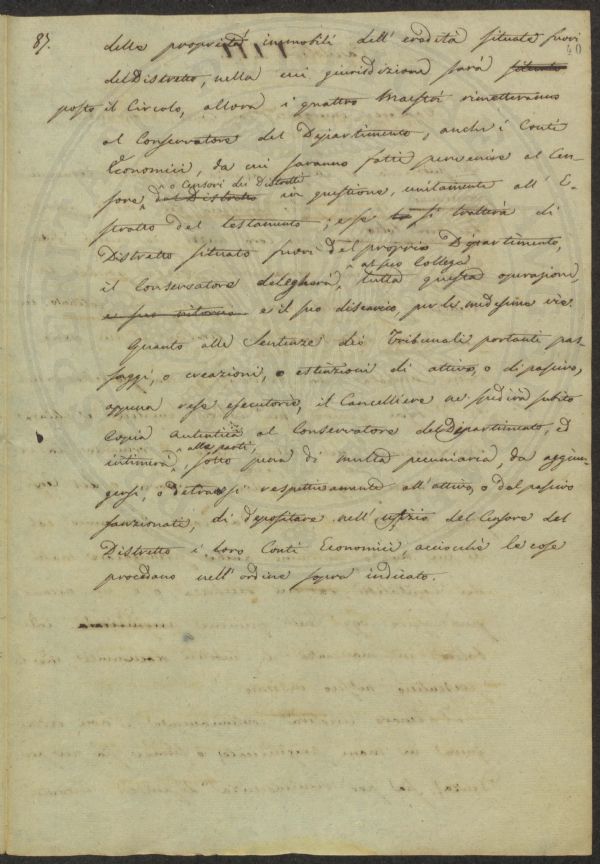 87.
40
delle proprietà immobili dell' eredità situate fuori
del Distretto, nella cui giurisdizione sarà situato
posto il Circolo, allora i quattro Maestri rimetteranno
al Conservatore del Dipartimento, anche i Conti
Economici, da cui saranno fatti pervenire al Cen-
o Censori dei Distretti
sore del Distretto in questione, unitamente all' E-
stratto del testamento; e se si tratterà di
Distretto situato fuori del proprio Dipartimento,
al suo Collega
il Conservatore delegherà, tutta questa operazione,
e suo ritorno e il suo discarico, per le medesime vie.
Quanto alle Sentenze dei Tribunali portanti pas-
saggi, o creazioni, o estinzioni di attivo, o di passivo,
appena rese esecutorie, il Cancelliere ne spedirà subito
Copia autentica al Conservatore del Dipartimento, ed
alle parti,
intimerà, sotto pena di multa pecuniaria, da aggiun-
gersi, o detrarsi respettivamente all' attivo, o dal passivo
sanzionati, di depositare nell' ufizio del Censore del
Distretto i loro Conti Economici, acciocchè le cose
procedano nell' ordine sopra indicato.